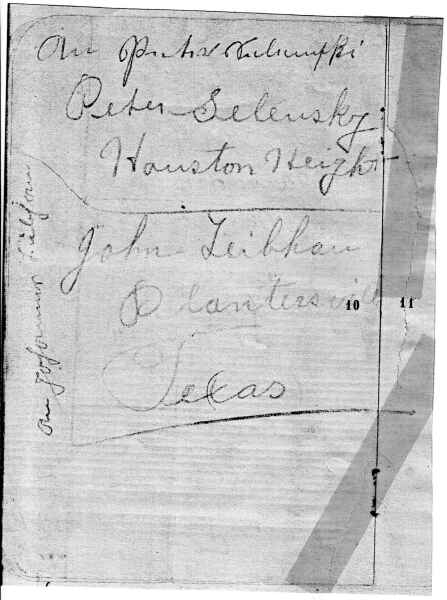 An Peter Selenski
Peter Selensky
Houston Height
John Leibhan
Plantersville
10 11
Texas
An Johannes